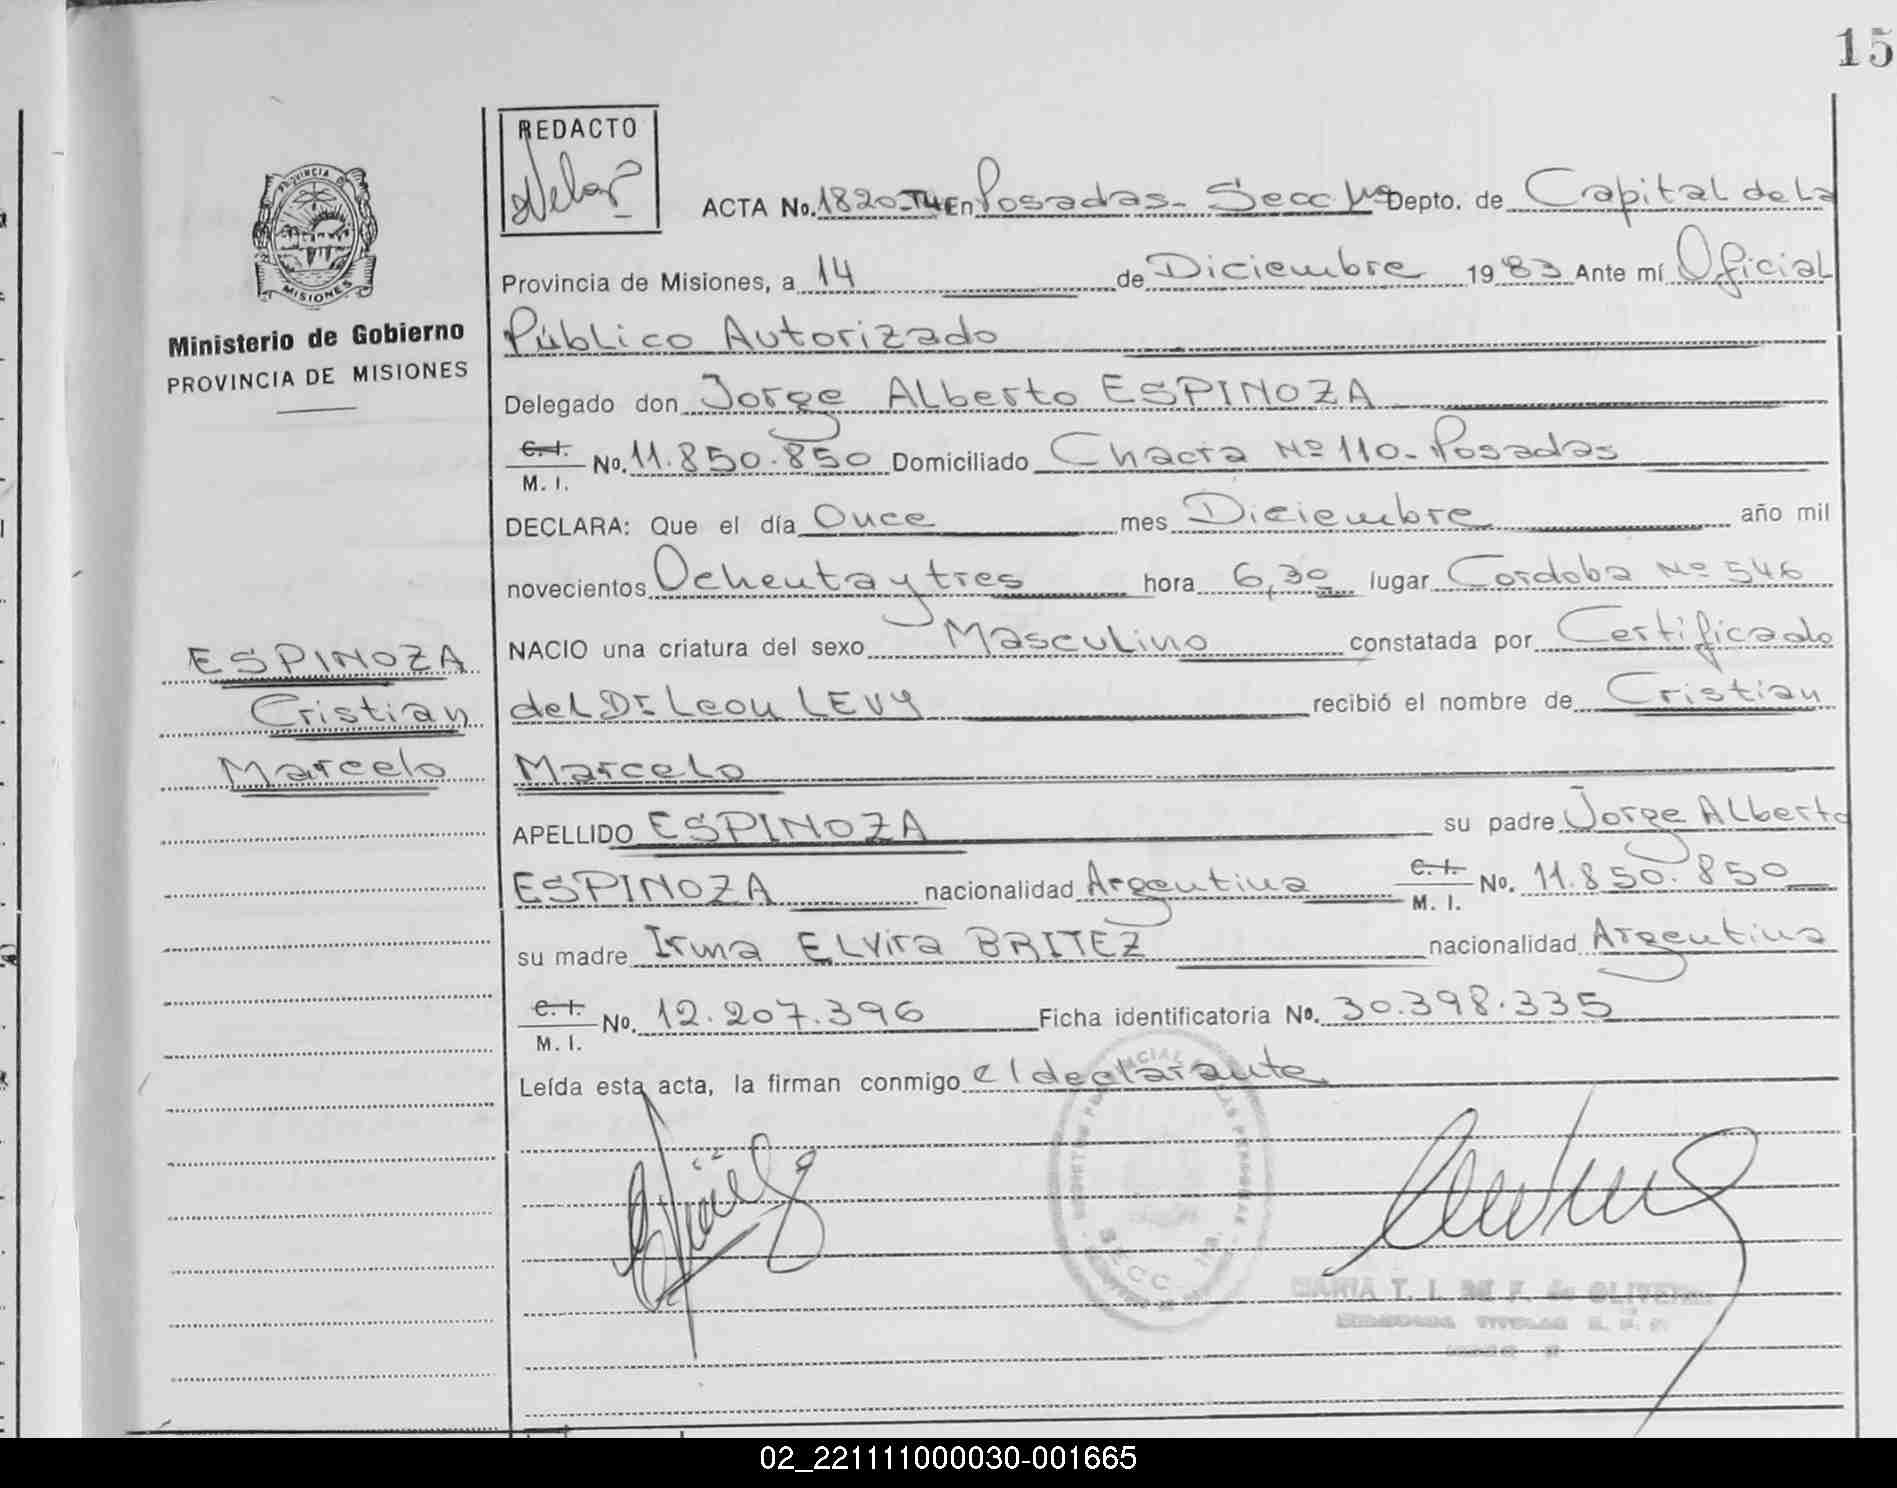 15
REDACTO
ACTA No. 1820-T4 En Posadas- Secc 1ra Depto. de Capital de La
Provincia de Misiones, a 14 de Diciembre 1983 Ante mí Oficial
Público Autorizado
Delegado don Jorge Alberto ESPINOZA
C. I.
M. I. No. 11.850.850 Domiciliado Chacra Nº 110- Posadas
DECLARA: Que el día Once mes Diciembre año mil
novecientos Ochenta y tres hora 6,30 lugar Cordoba Nº 546
NACIO una criatura del sexo Masculino constatada por Certificado
del Dr Leon LEVY recibió el nombre de Cristian
Marcelo
APELLIDO ESPINOZA su padre Jorge Alberto
ESPINOZA nacionalidad Argentina C. I.
M. I. No. 11.850.850
su madre Irma ELVira BRITEZ nacionalidad Argentina
C. I.
M. I. No. 12.207.396 Ficha identificatoria No. 30.398.335
Leída esta acta, la firman conmigo el declarante
PROVINCIA DE
MISIONES
Ministerio de Gobierno
PROVINCIA DE MISIONES
ESPINOZA
Cristian
Marcelo
SECC. 1ra.
MARIA T. I. DE F. de OLIVEIRA
02_221111000030-001665